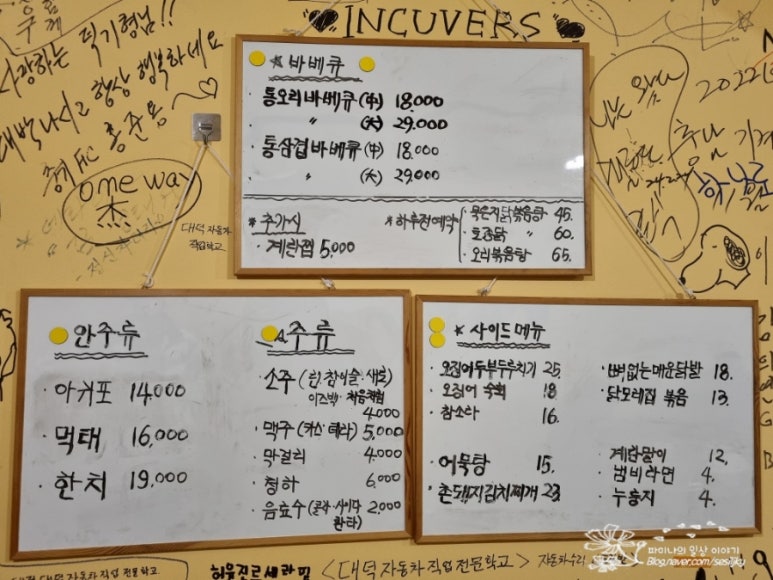 INCUVERS
사랑하는 딕기형님!!
대박나시고 항상 행복하세요
형 FC 홍준용
one way
杰
대덕 자동차
직업학교
2022
* 바베큐
통오리바베큐 (中) 18.000
" (大) 29.000
통삼겹바베큐 (中) 18.000
" (大) 29.000
* 추가시
· 계란찜 5.000
* 하루전예약
묵은지닭볶음탕 45.
· 토종닭 " 60.
· 오리볶음탕 65.
안주류
· 아귀포 14.000
· 먹태 16.000
· 한치 19.000
주류
· 소주 (린.참이슬.새로
이즈백. 처음처럼
4.000
· 맥주 (카스.테라) 5.000
· 막걸리 4.000
· 청하 6.000
· 음료수 (콜라.사이다 2.000
환타)
* 사이드메뉴
· 오징어두부두루치기 25.
· 오징어 숙회 18
· 참소라 16.
· 어묵탕 15.
· 촌돼지김치찌개 23.
· 뼈없는매운닭발 18.
· 닭모래집 볶음 13.
· 계란말이 12.
· 냄비라면 4.
· 누룽지 4.
대덕 자동차 직업 전문학교
허윤진르세라핌
<대덕 자동차 직업 전문학교>
파이나의 일상 이야기
Blog.naver.com/sestjky